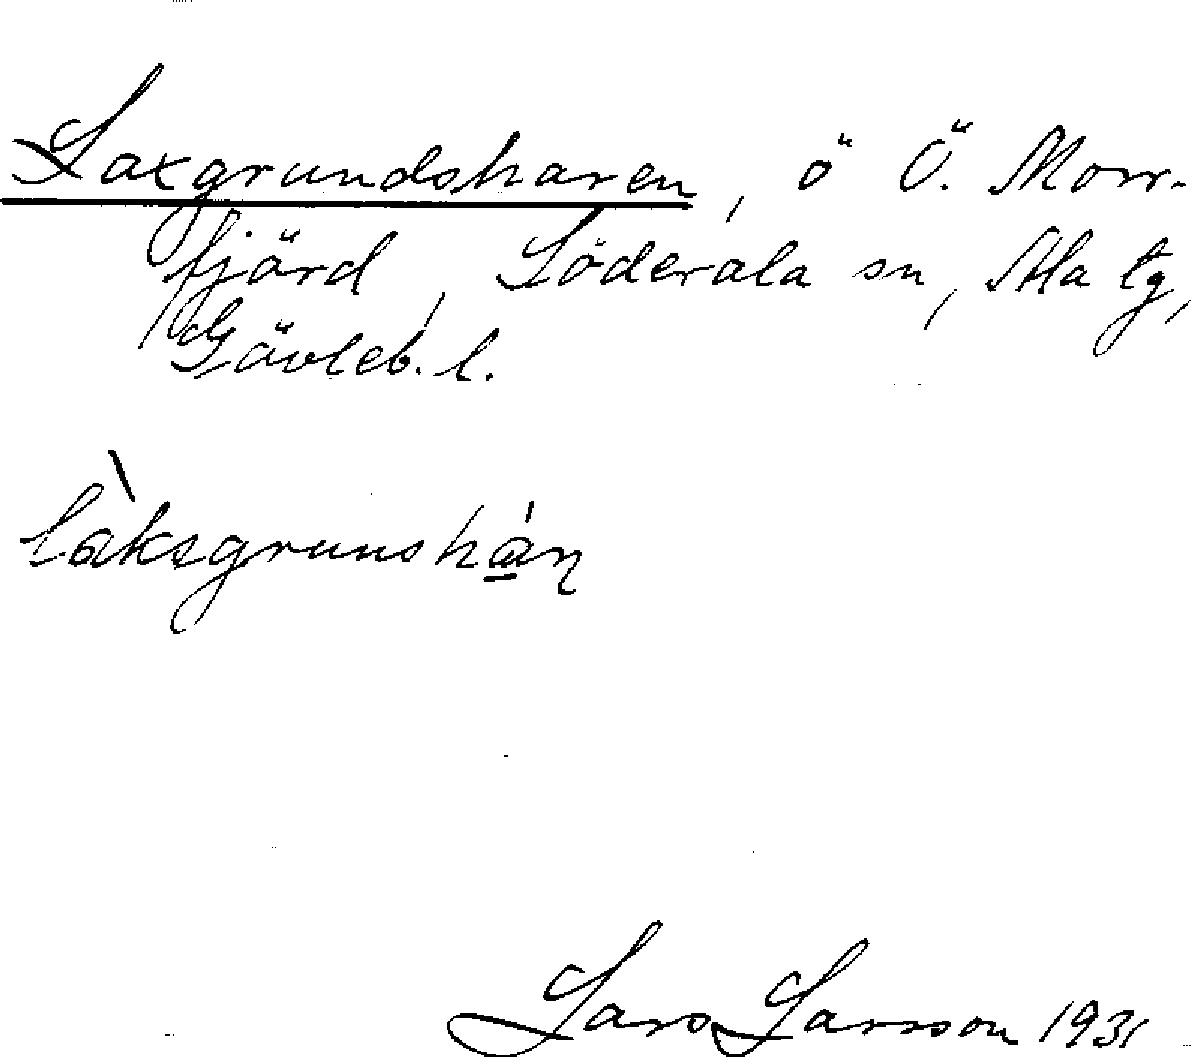 Laxgrundsharen, ö Ö. Morr-
fjärd, Söderala sn, Ala tg,
Gävleb. l.
làksgrunshá̱ṇ
Lars Larsson 1931